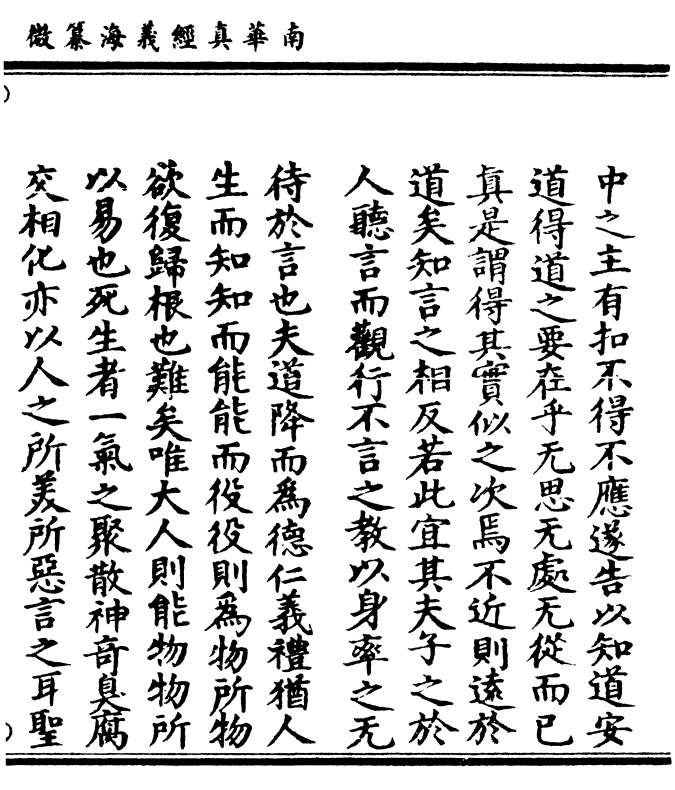 南華真經義海纂微
中之主有扣不得不應遂告以知道安
道得道之要在乎无思无處无從而已
真是謂得其實似之次焉不近則遠於
道矣知言之相反若此宜其夫子之於
人聽言而觀行不言之教以身率之无
待於言也夫道降而為德仁義禮猶人
生而知知而能能而役役則為物所物
欲復歸根也難矣唯大人則能物物所
以易也死生者一氣之聚散神奇臭腐
交相化亦以人之所美所惡言之耳聖